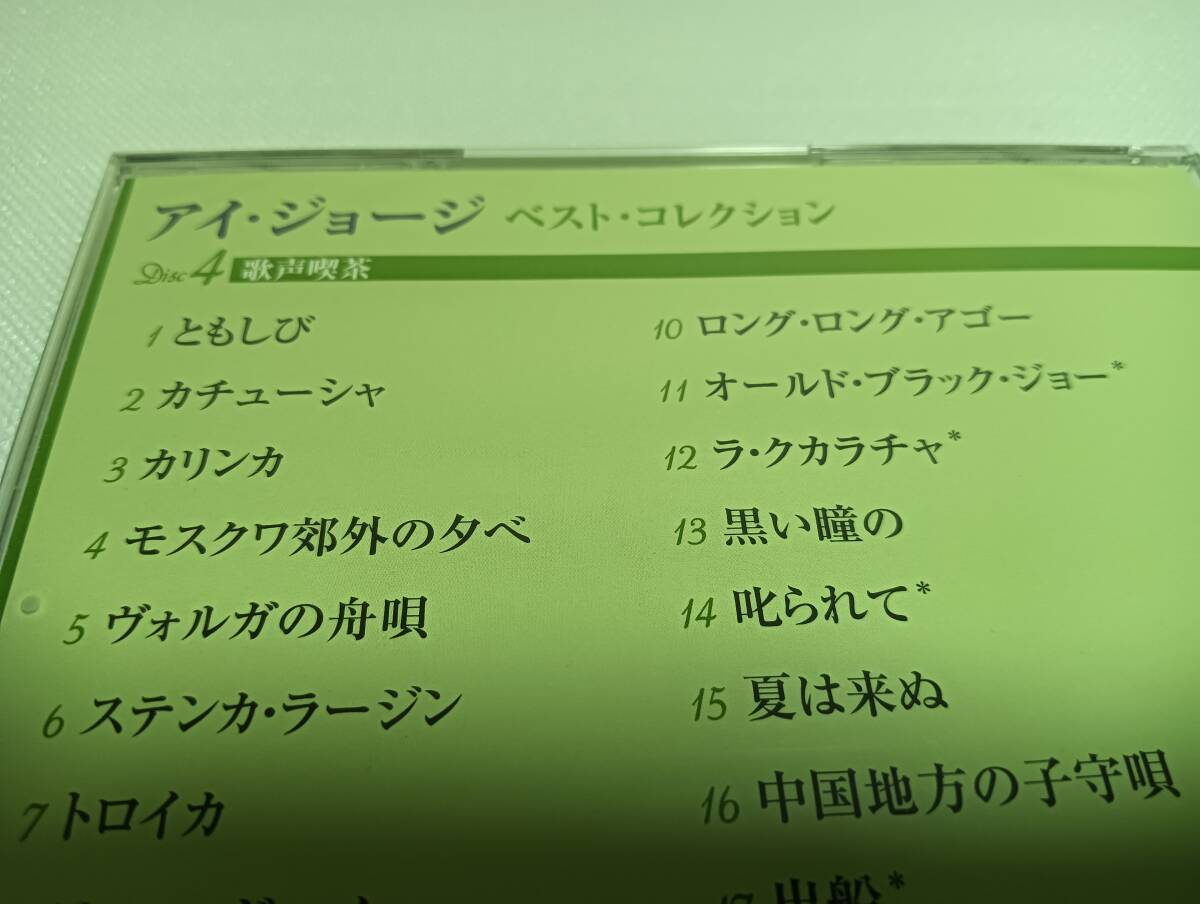 アイ・ジョージ ベスト・コレクション
Disc 4 歌声喫茶
1 ともしび
2 カチューシャ
3 カリンカ
4 モスクワ郊外の夕べ
5 ヴォルガの舟唄
6 ステンカ・ラージン
7 トロイカ
10 ロング・ロング・アゴー
11 オールド・ブラック・ジョー*
12 ラ・クカラチャ*
13 黒い瞳の
14 叱られて*
15 夏は来ぬ
16 中国地方の子守唄
17 出船*